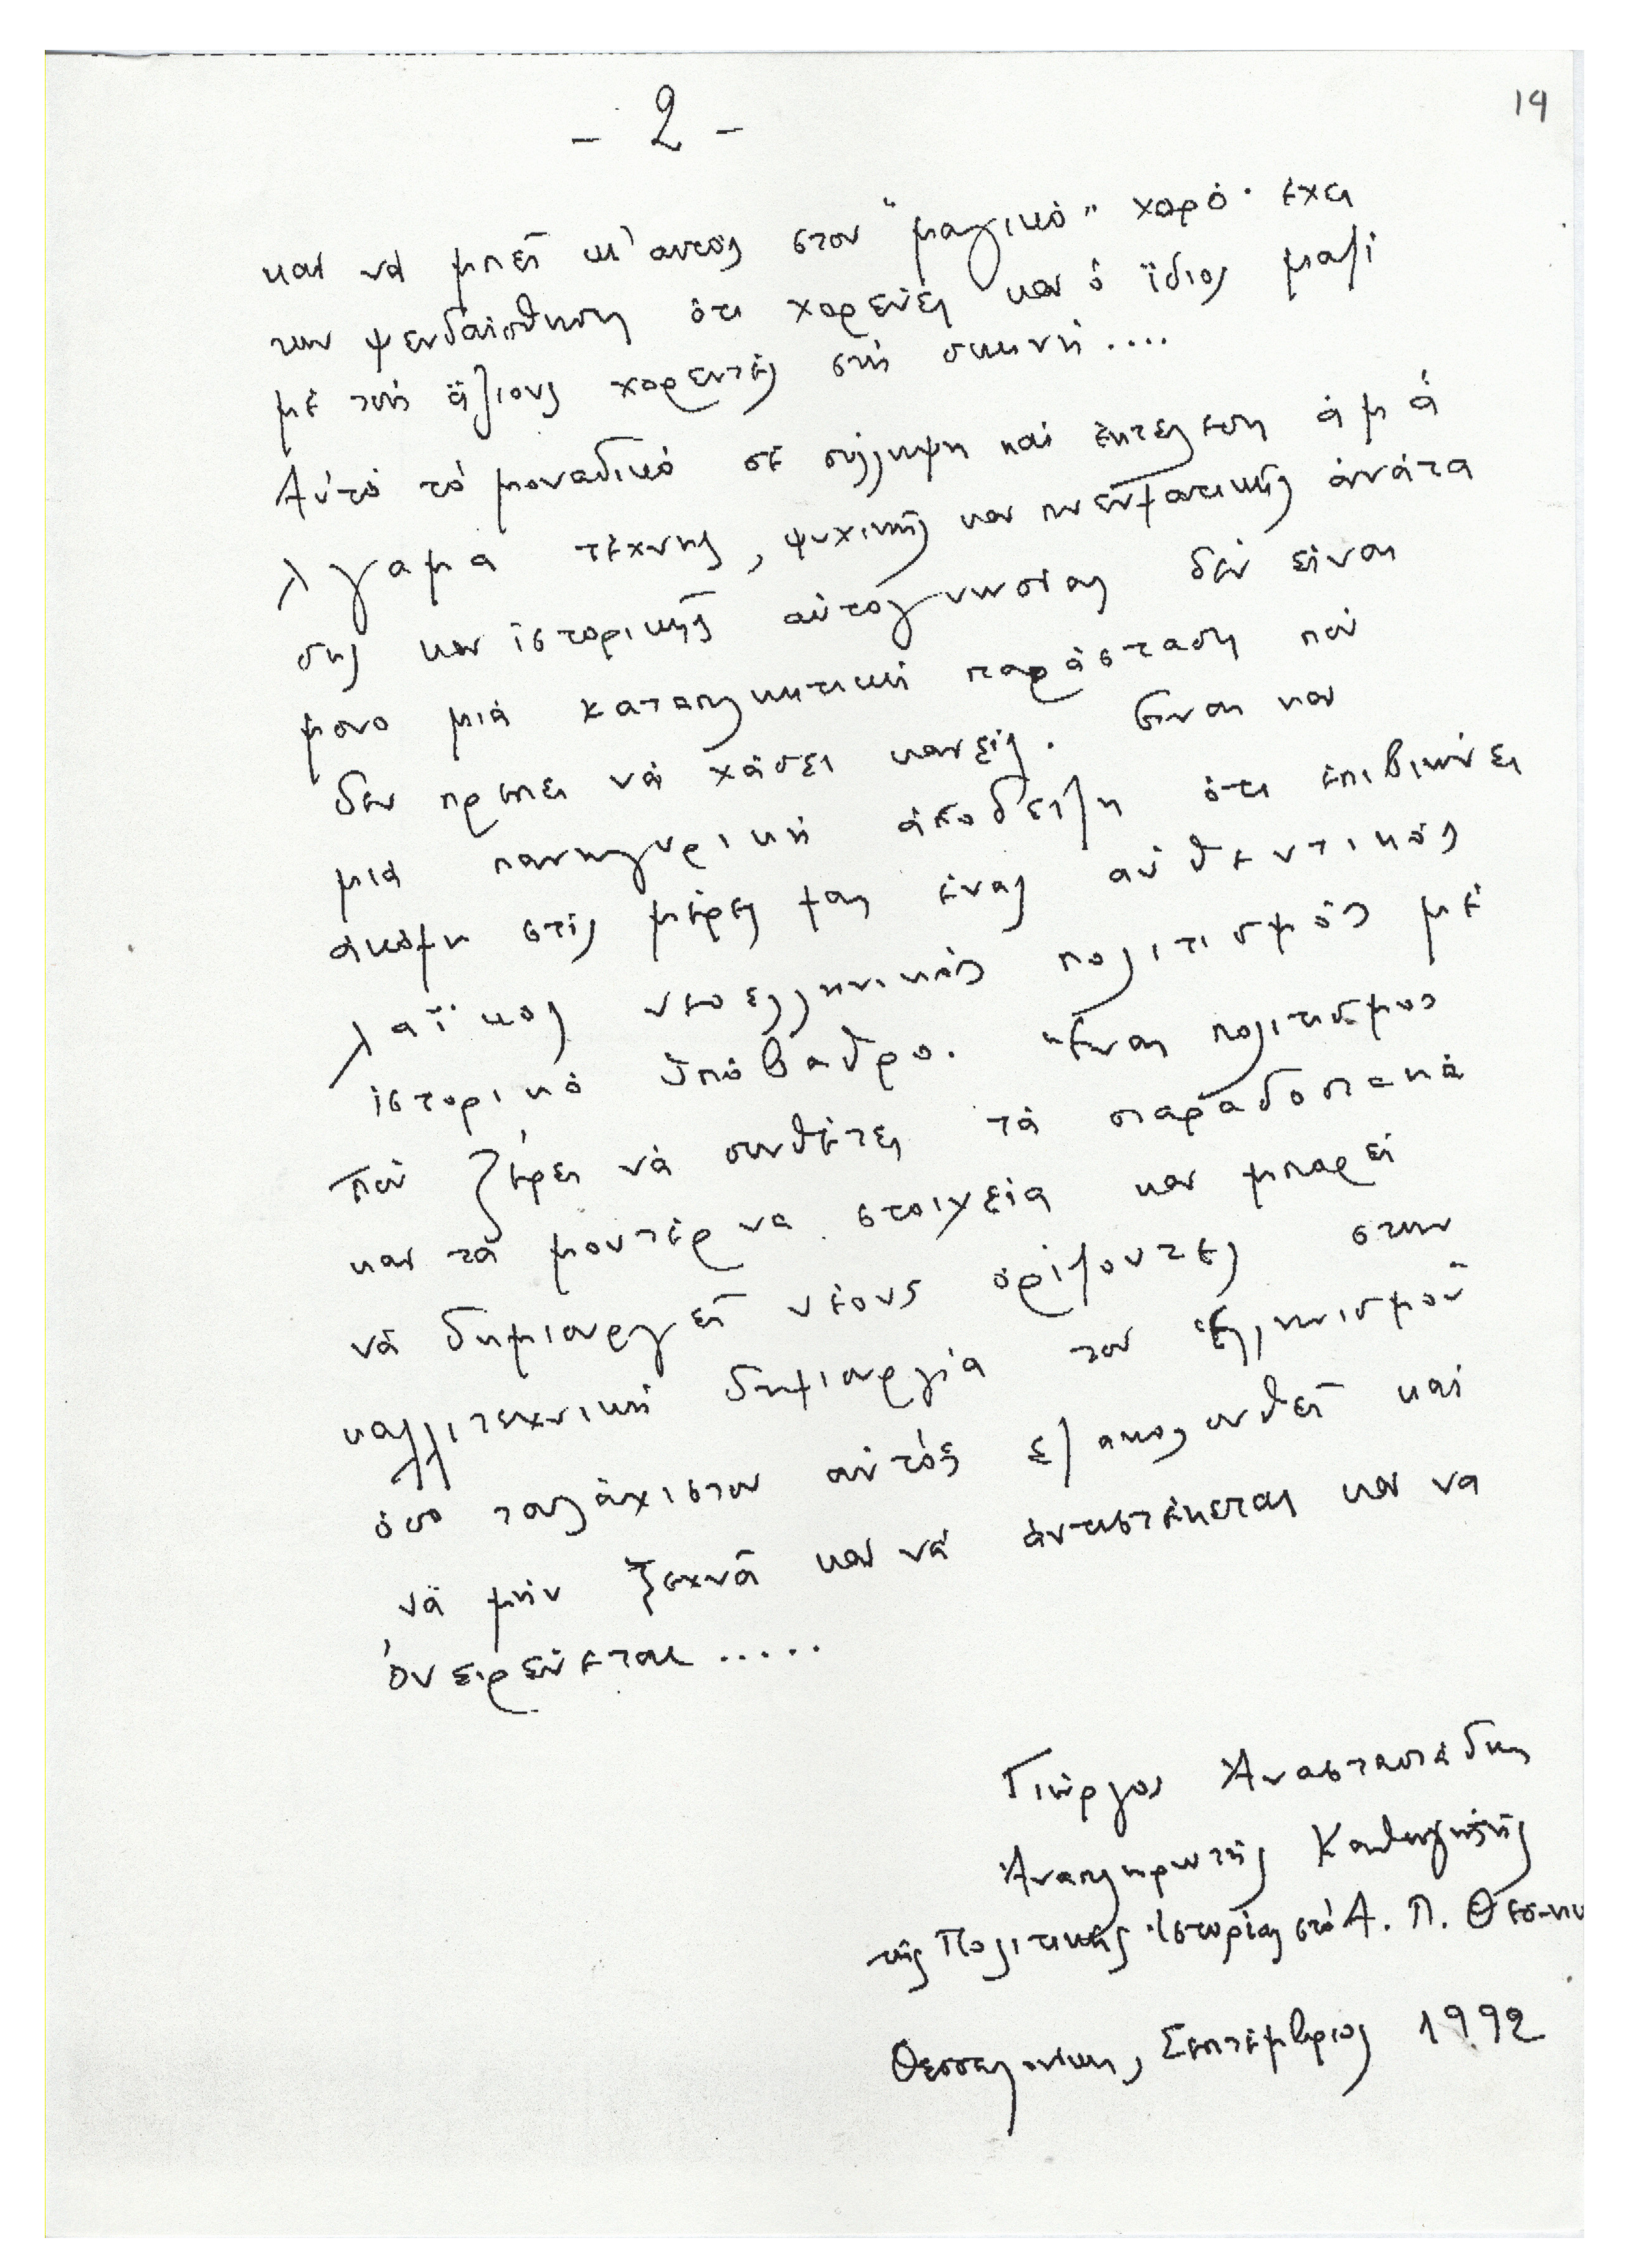 - 2 -
19
καί νά μπεῖ κι' αυτός στον "μαγικό" χορό· έχει
την ψευδαίσθηση ότι χορεύει και ὁ ἴδιος μαζί
μέ τούς ἄξιους χορευτές στή σκηνή....
Αὐτό τό μοναδικό σέ σύλληψη καί ἐκτέλεση ἀμά
λγαμα τέχνης, ψυχικῆς και πνευματικῆς ἀνάτα
σης και ἱστορικῆς αὐτογνωσίας δέν εἶναι
μονο μιά καταπληκτική παράσταση πού
δεν πρεπει νά χάσει κανείς. Είναι και
μιά πανηγυρική ἀπόδειξη ὅτι ἐπιβιώνει
ἀκόμη στίς μέρες μας ἕνας αὐθεντικός
λαϊκος νεοελληνικός πολιτισμός μέ
ἱστορικό ὑπόβαθρο. Ἕνας πολιτισμος
πού ξέρει νά συνθέτει τά παραδοσιακά
και τά μοντέρνα στοιχεία και μπορεί
νά δημιουργεῖ νέους ὁρίζοντες στην
καλλιτεχνική δημιουργία του Ἑλληνισμοῦ
όσο τουλάχιστον αὐτός ἐξακολουθεῖ καί
νά μήν ξεχνᾶ και νά ἀντιστέκεται και να
ὀνειρεύεται.....
Γιώργος Ἀναστασιάδης
Ἀναπληρωτής Καθηγητής
τῆς Πολιτικῆς Ἱστορίας στό Α. Π. Θεσ-νικ
Θεσσαλονίκη, Σεπτέμβριος 1992